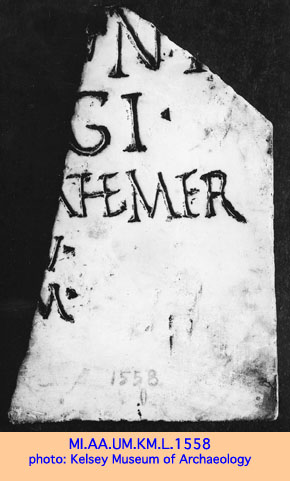 N
GI ·
HEMER
I ·
M ·
1558
MI.AA.UM.KM.L.1558
photo: Kelsey Museum of Archaeology